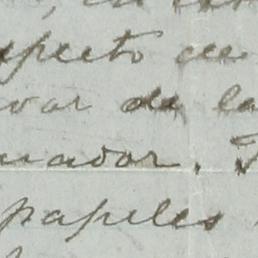 specto de
var de la
uador.
papeles